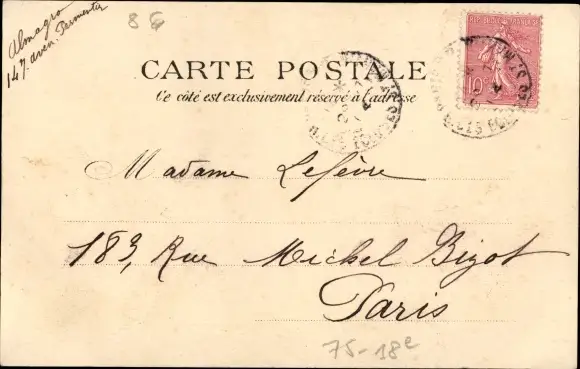 Almagro
147. aven. Parmentier
8 €
RÉPUBLIQUE FRANÇAISE
10
CARTE POSTALE
Ce côté est exclusivement réservé à l'adresse
Madame Lefèvre
183, Rue Michel Bizot
Paris
75-18e